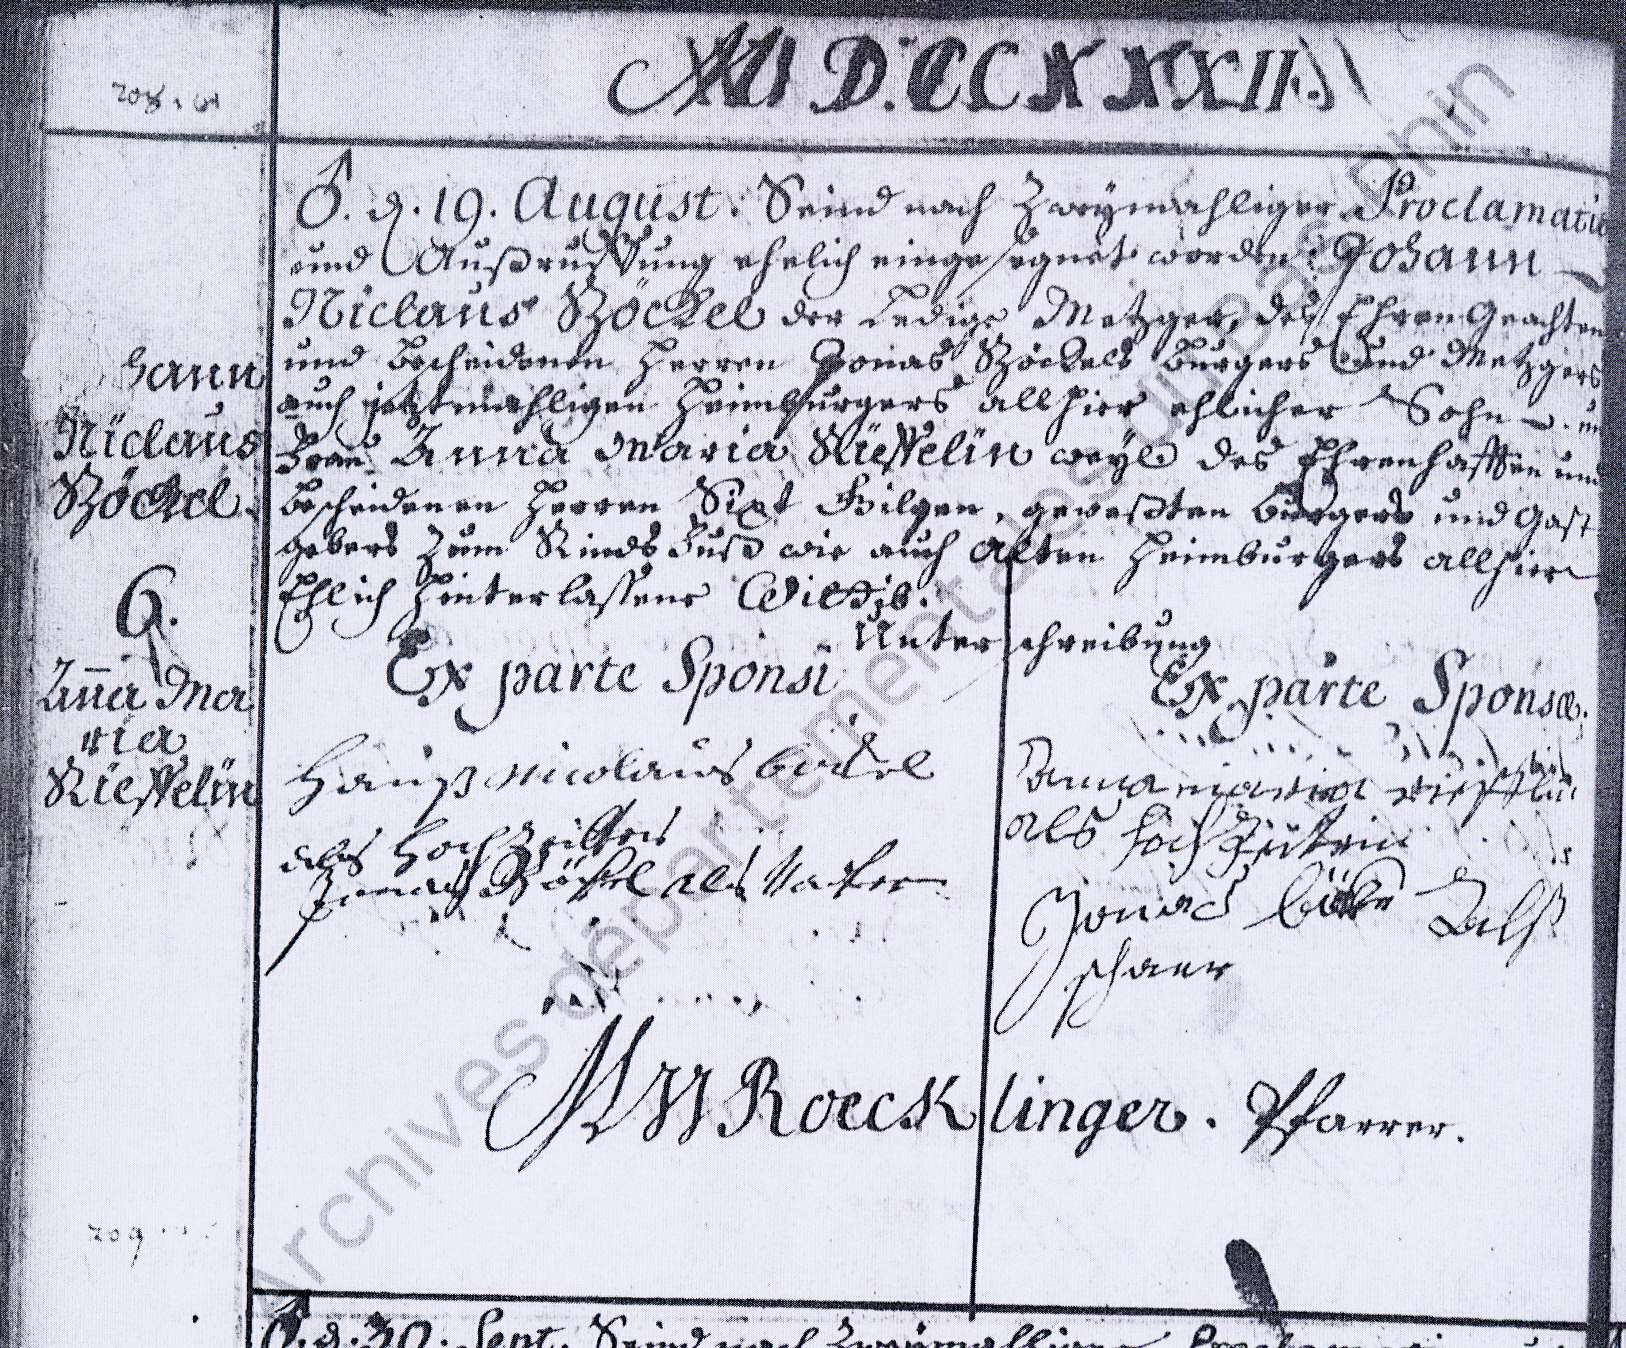 208.
MDCCXXXII.
♂. d. 19. August. Seind nach Zweymahliger Proclamation
und Außruffung ehelich eingesegnet worden Johann
Niclaus Böckel der Ledige Metzger, des Ehren Geachten
und Bescheidenen Herren Jonas Böckels Burgers und Metzgers
auch jetztmahligen Heimburgers allhier ehlicher Sohn u.
Frau Anna Maria Rieffelin weyl. des Ehrenhafften und
Bescheidenen Herren Sixt Gilgen, geweßten Burgers und Gast
gebers Zum Rinds Fuß wie auch alten Heimburgers allhier
Ehlich Hinterlassene Wittib.
hann
Niclaus
Böckel.
6.
Anna Ma
ria
Rieffelin
Unterschreibung
Ex parte Sponsi
Hanß nicolaus böckel
als Hochzeitter
Jonas Böckel als Vatter
Ex parte Sponsæ.
anna maria riefflin
als hochzeiterin
Jonas Alß
M W Roecklinger. Pfarrer.
209
♂. d. 30. Sept. Seind nach Zweymahliger
Archives départementales du Bas-Rhin